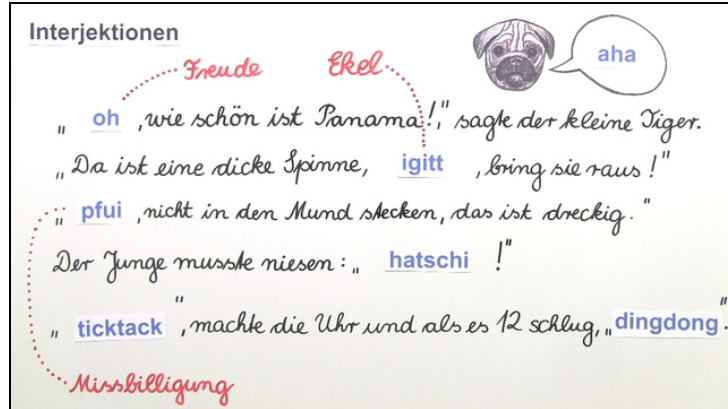 Interjektionen
aha
Freude Ekel
„ oh , wie schön ist Panama!," sagte der kleine Tiger.
„Da ist eine dicke Spinne, igitt , bring sie raus!"
„ pfui , nicht in den Mund stecken, das ist dreckig."
Der Junge musste niesen: „ hatschi !"
„ ticktack ", machte die Uhr und als es 12 schlug, „dingdong".
Missbilligung